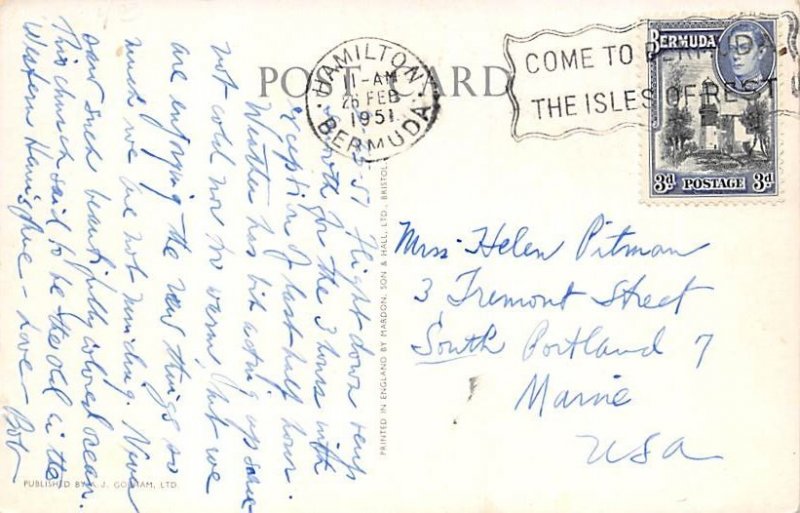 POST CARD
HAMILTON
1-AM
26 FEB
1951
BERMUDA
COME TO BERMUDA
THE ISLES OF REST
BERMUDA
3d POSTAGE 3d
51 Flight down very
smooth for the 3 hours with
exception of last half hour.
Weather has bit acting up some
not cold nor so warm, but we
are enjoying the new things so
much we are not minding. Never
saw such beautifully colored ocean.
This church said to be the old in the
Western Hemisphere - Love - Bob
Mrs. Helen Pitman
3 Tremont Street
South Portland 7
Maine
USA
PRINTED IN ENGLAND BY MARDON, SON & HALL, LTD., BRISTOL
PUBLISHED BY A. J. GORHAM, LTD.